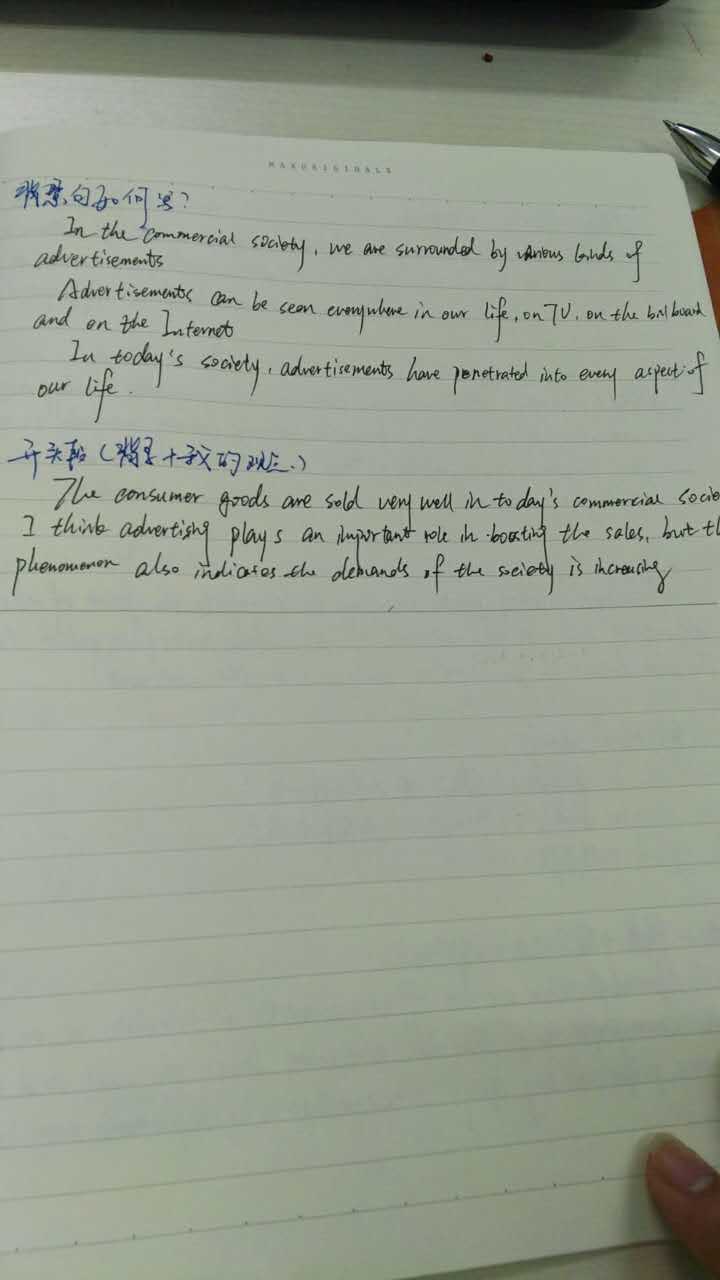 MAXORIGINALS
背景句如何写?
In the commercial society, we are surrounded by various kinds of
advertisements
Advertisements can be seen everywhere in our life, on TV, on the billboard
and on the Internet
In today's society, advertisements have penetrated into every aspect of
our life.
开头段(背景+我的观点.)
The consumer goods are sold very well in today's commercial socie
I think advertising plays an important role in boosting the sales, but th
phenomenon also indicates the demands of the society is increasing